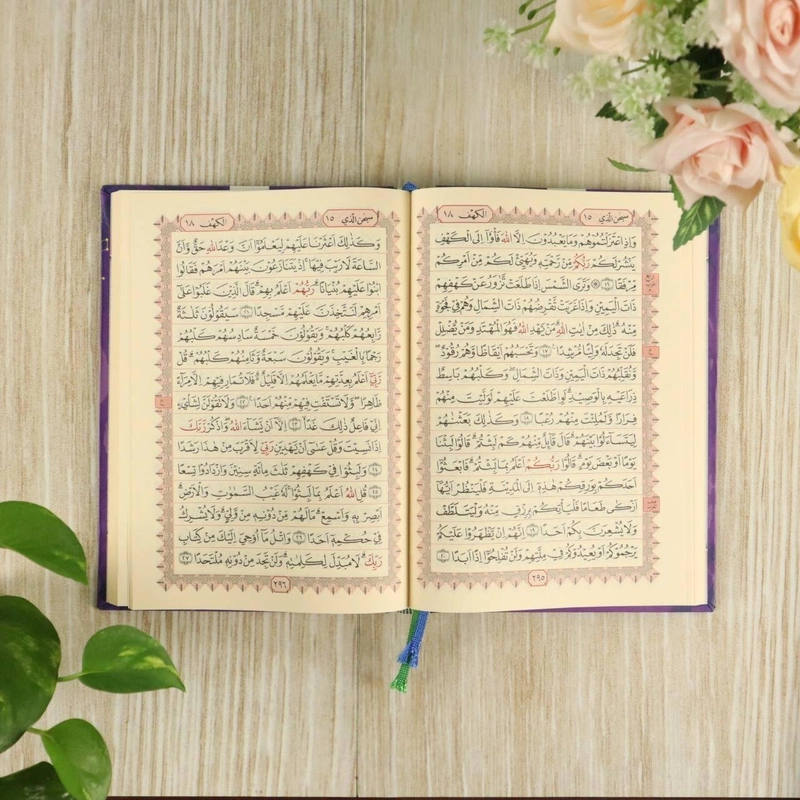 سبحن الذي ١٥
الكهف ١٨
وَإِذِ اعْتَزَلْتُمُوهُمْ وَمَا يَعْبُدُونَ إِلَّا اللّٰهَ فَأْوٗٓا إِلَى الْكَهْفِ
يَنْشُرْ لَكُمْ رَبُّكُمْ مِّنْ رَّحْمَتِهٖ وَيُهَيِّئْ لَكُمْ مِّنْ أَمْرِكُمْ
مِّرْفَقًا ١٦ وَتَرَى الشَّمْسَ إِذَا طَلَعَتْ تَّزٰوَرُ عَنْ كَهْفِهِمْ
ذَاتَ الْيَمِيْنِ وَإِذَا غَرَبَتْ تَّقْرِضُهُمْ ذَاتَ الشِّمَالِ وَهُمْ فِيْ فَجْوَةٍ
مِّنْهُ ذٰلِكَ مِنْ اٰيٰتِ اللّٰهِ مَنْ يَّهْدِ اللّٰهُ فَهُوَ الْمُهْتَدِ وَمَنْ يُّضْلِلْ
فَلَنْ تَجِدَ لَهٗ وَلِيًّا مُّرْشِدًا ١٧ وَتَحْسَبُهُمْ أَيْقَاظًا وَّهُمْ رُقُوْدٌ
وَّنُقَلِّبُهُمْ ذَاتَ الْيَمِيْنِ وَذَاتَ الشِّمَالِ وَكَلْبُهُمْ بَاسِطٌ
ذِرَاعَيْهِ بِالْوَصِيْدِ لَوِ اطَّلَعْتَ عَلَيْهِمْ لَوَلَّيْتَ مِنْهُمْ
فِرَارًا وَّلَمُلِئْتَ مِنْهُمْ رُعْبًا ١٨ وَكَذٰلِكَ بَعَثْنٰهُمْ
لِيَتَسَآءَلُوْا بَيْنَهُمْ قَالَ قَآئِلٌ مِّنْهُمْ كَمْ لَبِثْتُمْ قَالُوْا لَبِثْنَا
يَوْمًا أَوْ بَعْضَ يَوْمٍ قَالُوْا رَبُّكُمْ أَعْلَمُ بِمَا لَبِثْتُمْ فَابْعَثُوْٓا
أَحَدَكُمْ بِوَرِقِكُمْ هٰذِهٖٓ إِلَى الْمَدِيْنَةِ فَلْيَنْظُرْ أَيُّهَآ
أَزْكٰى طَعَامًا فَلْيَأْتِكُمْ بِرِزْقٍ مِّنْهُ وَلْيَتَلَطَّفْ
وَلَا يُشْعِرَنَّ بِكُمْ أَحَدًا ١٩ إِنَّهُمْ إِنْ يَّظْهَرُوْا عَلَيْكُمْ
يَرْجُمُوْكُمْ أَوْ يُعِيْدُوْكُمْ فِيْ مِلَّتِهِمْ وَلَنْ تُفْلِحُوْٓا إِذًا أَبَدًا ٢٠
٢٩٥
سبحن الذي ١٥
الكهف ١٨
وَكَذٰلِكَ أَعْثَرْنَا عَلَيْهِمْ لِيَعْلَمُوْٓا أَنَّ وَعْدَ اللّٰهِ حَقٌّ وَّأَنَّ
السَّاعَةَ لَا رَيْبَ فِيْهَا إِذْ يَتَنَازَعُوْنَ بَيْنَهُمْ أَمْرَهُمْ فَقَالُوا
ابْنُوْا عَلَيْهِمْ بُنْيَانًا رَبُّهُمْ أَعْلَمُ بِهِمْ قَالَ الَّذِيْنَ غَلَبُوْا عَلٰٓى
أَمْرِهِمْ لَنَتَّخِذَنَّ عَلَيْهِمْ مَّسْجِدًا ٢١ سَيَقُوْلُوْنَ ثَلٰثَةٌ
رَّابِعُهُمْ كَلْبُهُمْ وَيَقُوْلُوْنَ خَمْسَةٌ سَادِسُهُمْ كَلْبُهُمْ
رَجْمًا بِالْغَيْبِ وَيَقُوْلُوْنَ سَبْعَةٌ وَّثَامِنُهُمْ كَلْبُهُمْ قُلْ
رَّبِّيْٓ أَعْلَمُ بِعِدَّتِهِمْ مَّا يَعْلَمُهُمْ إِلَّا قَلِيْلٌ فَلَا تُمَارِ فِيْهِمْ إِلَّا مِرَآءً
ظَاهِرًا وَّلَا تَسْتَفْتِ فِيْهِمْ مِّنْهُمْ أَحَدًا ٢٢ وَلَا تَقُوْلَنَّ لِشَايْءٍ
إِنِّيْ فَاعِلٌ ذٰلِكَ غَدًا ٢٣ إِلَّآ أَنْ يَّشَآءَ اللّٰهُ وَاذْكُرْ رَّبَّكَ
إِذَا نَسِيْتَ وَقُلْ عَسٰٓى أَنْ يَّهْدِيَنِ رَبِّيْ لِأَقْرَبَ مِنْ هٰذَا رَشَدًا
٢٤ وَلَبِثُوْا فِيْ كَهْفِهِمْ ثَلٰثَ مِائَةٍ سِنِيْنَ وَازْدَادُوْا تِسْعًا
٢٥ قُلِ اللّٰهُ أَعْلَمُ بِمَا لَبِثُوْا لَهٗ غَيْبُ السَّمٰوٰتِ وَالْأَرْضِ
أَبْصِرْ بِهٖ وَأَسْمِعْ مَا لَهُمْ مِّنْ دُوْنِهٖ مِنْ وَّلِيٍّ وَّلَا يُشْرِكُ
فِيْ حُكْمِهٖٓ أَحَدًا ٢٦ وَاتْلُ مَآ أُوْحِيَ إِلَيْكَ مِنْ كِتَابِ
رَبِّكَ لَا مُبَدِّلَ لِكَلِمٰتِهٖ وَلَنْ تَجِدَ مِنْ دُوْنِهٖ مُلْتَحَدًا ٢٧
٢٩٦